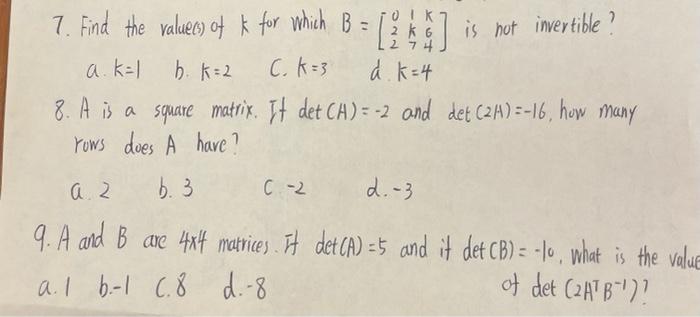 7. Find the value(s) of k for which B = [0 1 k
2 k 6
2 7 4] is not invertible?
a. k=1 b. k=2 C. k=3 d. k=4
8. A is a square matrix. If det (A) = -2 and det (2A) = -16, how many
rows does A have?
a. 2 b. 3 C -2 d. -3
9. A and B are 4x4 matrices. If det (A) = 5 and if det (B) = -10, what is the value
of det (2AᵀB⁻¹)?
a. 1 b. -1 C. 8 d. -8